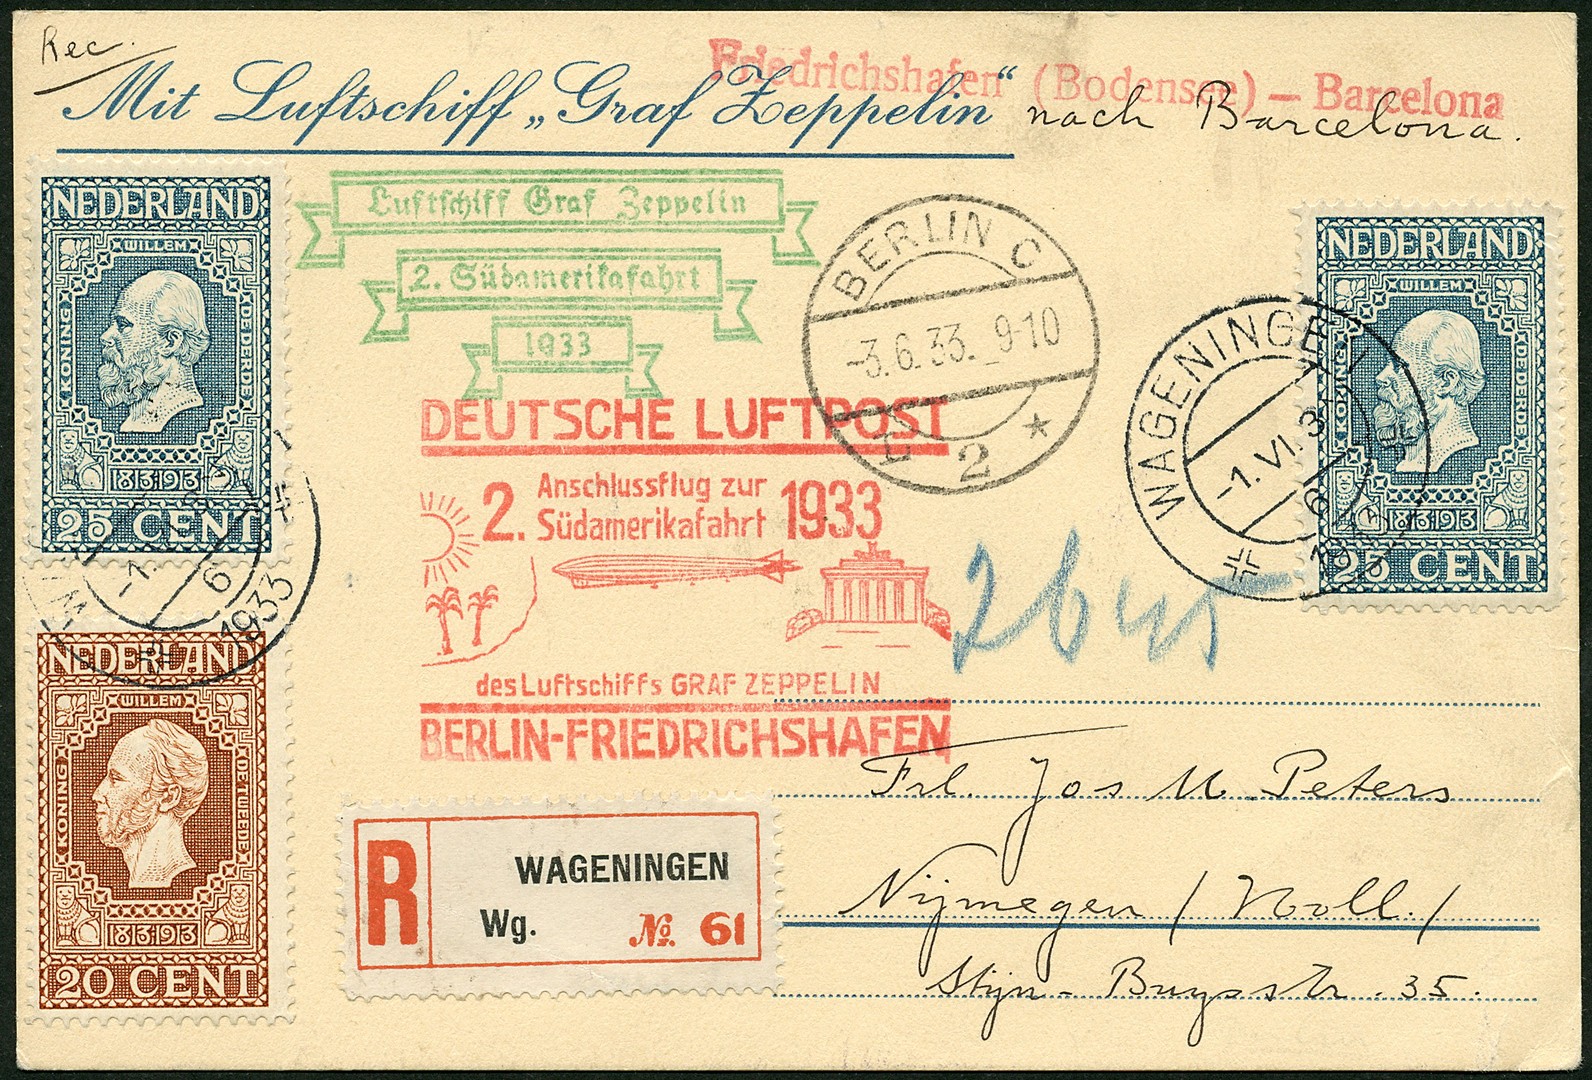 Rec.
Friedrichshafen (Bodensee) — Barcelona
Mit Luftschiff „Graf Zeppelin“ nach Barcelona.
NEDERLAND
WILLEM
KONING
DE DERDE
1813·1913
25 CENT
Luftschiff Graf Zeppelin
2. Südamerikafahrt
1933
BERLIN C
-3.6.33. 9-10
2 *
NEDERLAND
WILLEM
KONING
DE DERDE
1813·1913
25 CENT
WAGENINGEN
-1.VI.
DEUTSCHE LUFTPOST
2. Anschlussflug zur
Südamerikafahrt 1933
des Luftschiffs GRAF ZEPPELIN
BERLIN-FRIEDRICHSHAFEN
-1
6
1933
NEDERLAND
WILLEM
KONING
DE TWEEDE
1813·1913
20 CENT
R
WAGENINGEN
Wg. No. 61
Frl. Jos M. Peters
Nijmegen / Holl. /
Stijn-Buysstr. 35.